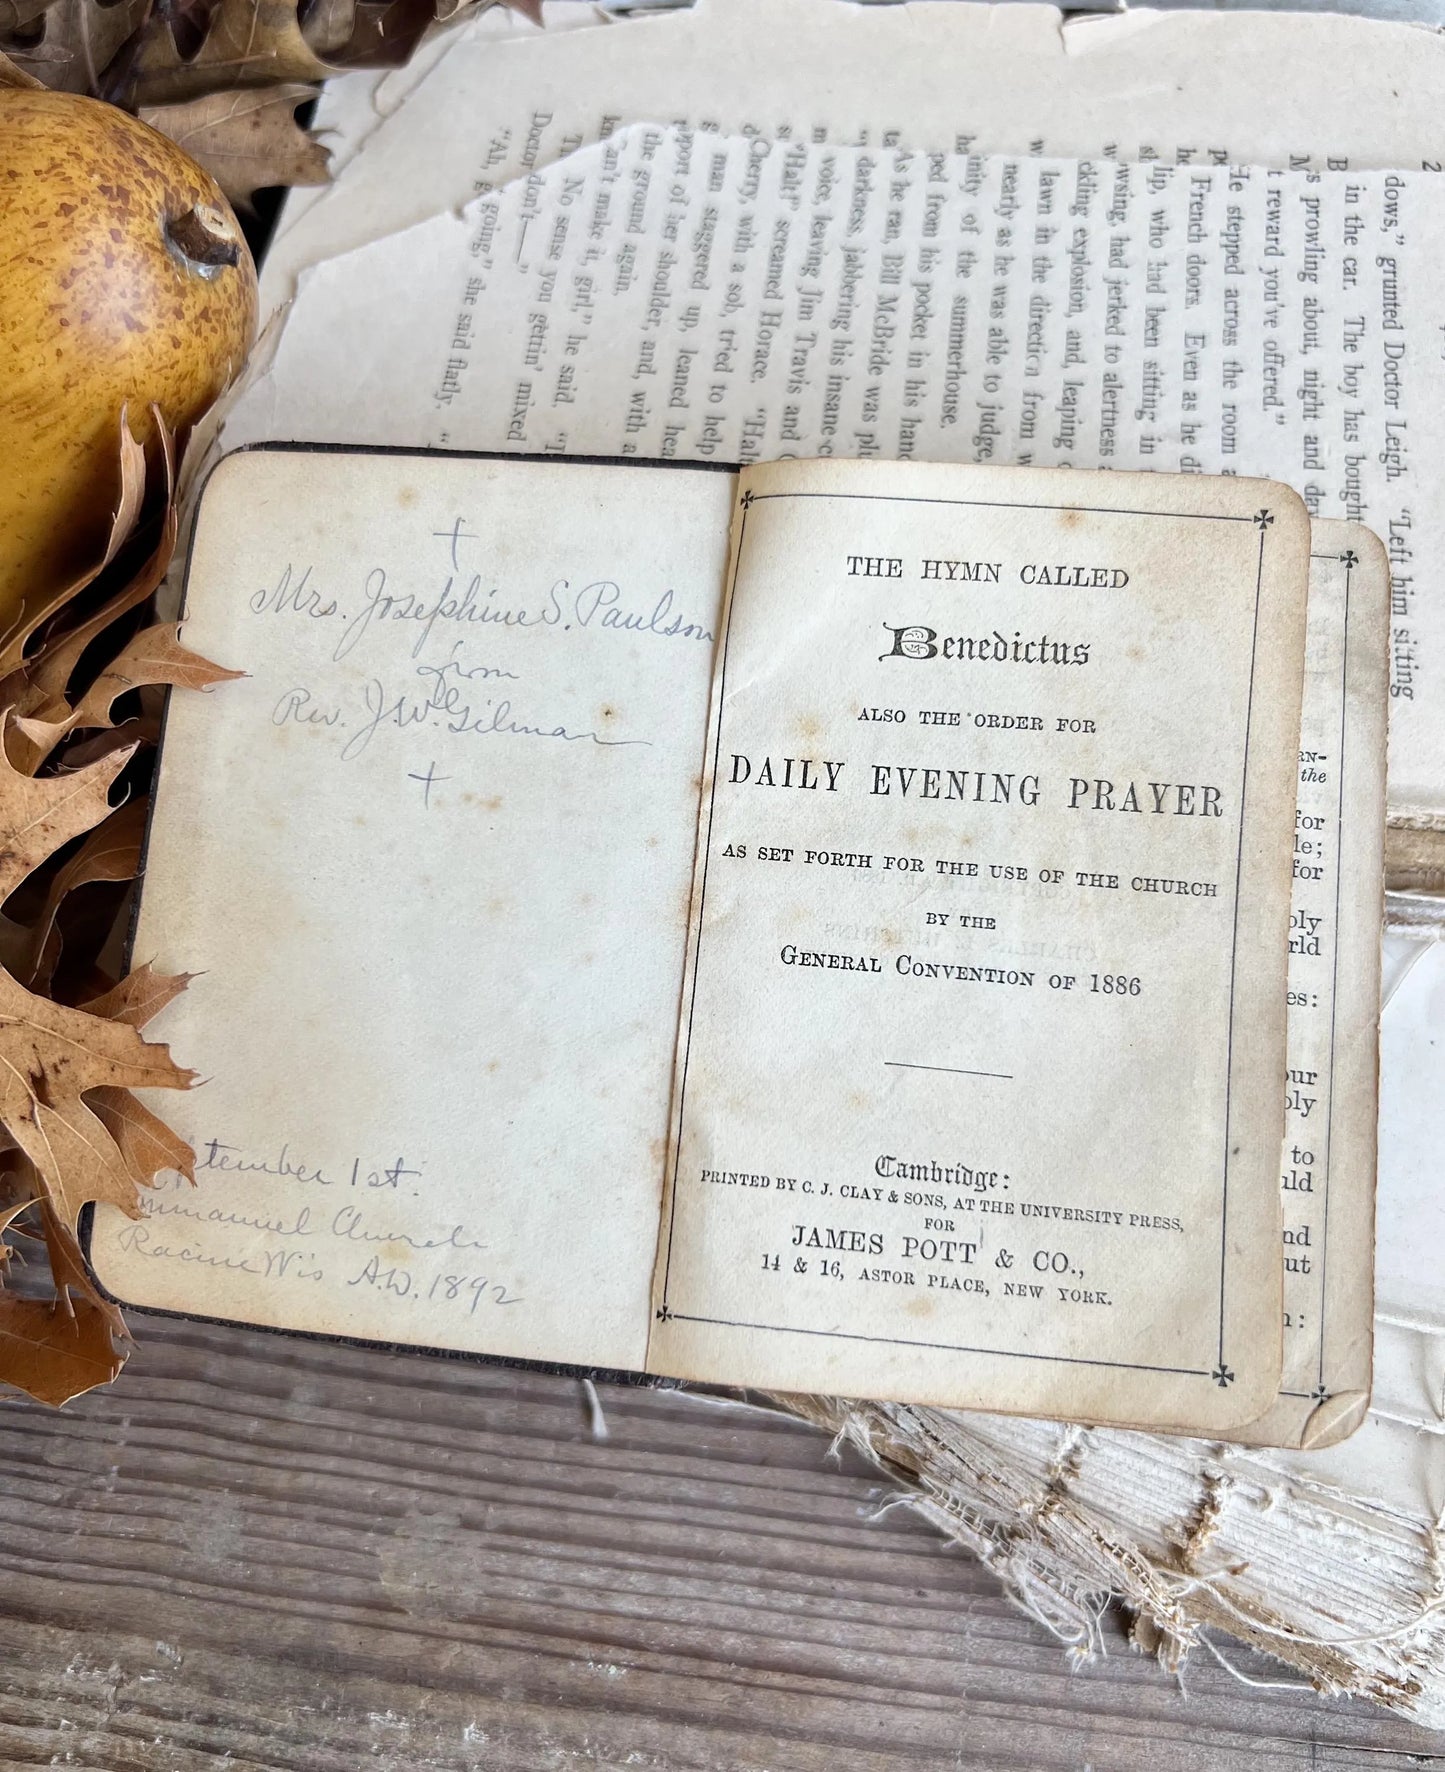 Mrs. Josephine S. Paulson
from
Rev. J.W. Gilman
tember 1st.
mmanuel Church
Racine Wis A.D. 1892
THE HYMN CALLED
Benedictus
ALSO THE ORDER FOR
DAILY EVENING PRAYER
AS SET FORTH FOR THE USE OF THE CHURCH
BY THE
GENERAL CONVENTION OF 1886
Cambridge:
PRINTED BY C. J. CLAY & SONS, AT THE UNIVERSITY PRESS,
FOR
JAMES POTT & CO.,
14 & 16, ASTOR PLACE, NEW YORK.
RN-
the
for
le;
for
oly
rld
es:
our
oly
to
uld
nd
ut
n:
2
dows," grunted Doctor Leigh. "Left him sitting
in the car. The boy has bought
s prowling about, night and day
t reward you've offered."
He stepped across the room
French doors. Even as he
lip, who had been sitting in
wsing, had jerked to alertness
ckling explosion, and, leaping
lawn in the direction from
nearly as he was able to judge,
inity of the summerhouse.
ped from his pocket in his
As he ran, Bill McBride was
darkness, jabbering his insane
voice, leaving Jim Travis and
"Halt!" screamed Horace.
Cherry, with a sob, tried to help
man staggered up, leaned
pport of her shoulder, and, with a
the ground again.
an't make it, girl," he said.
No sense you gettin' mixed
Doctor don't——"
"Ah, g' going," she said flatly.